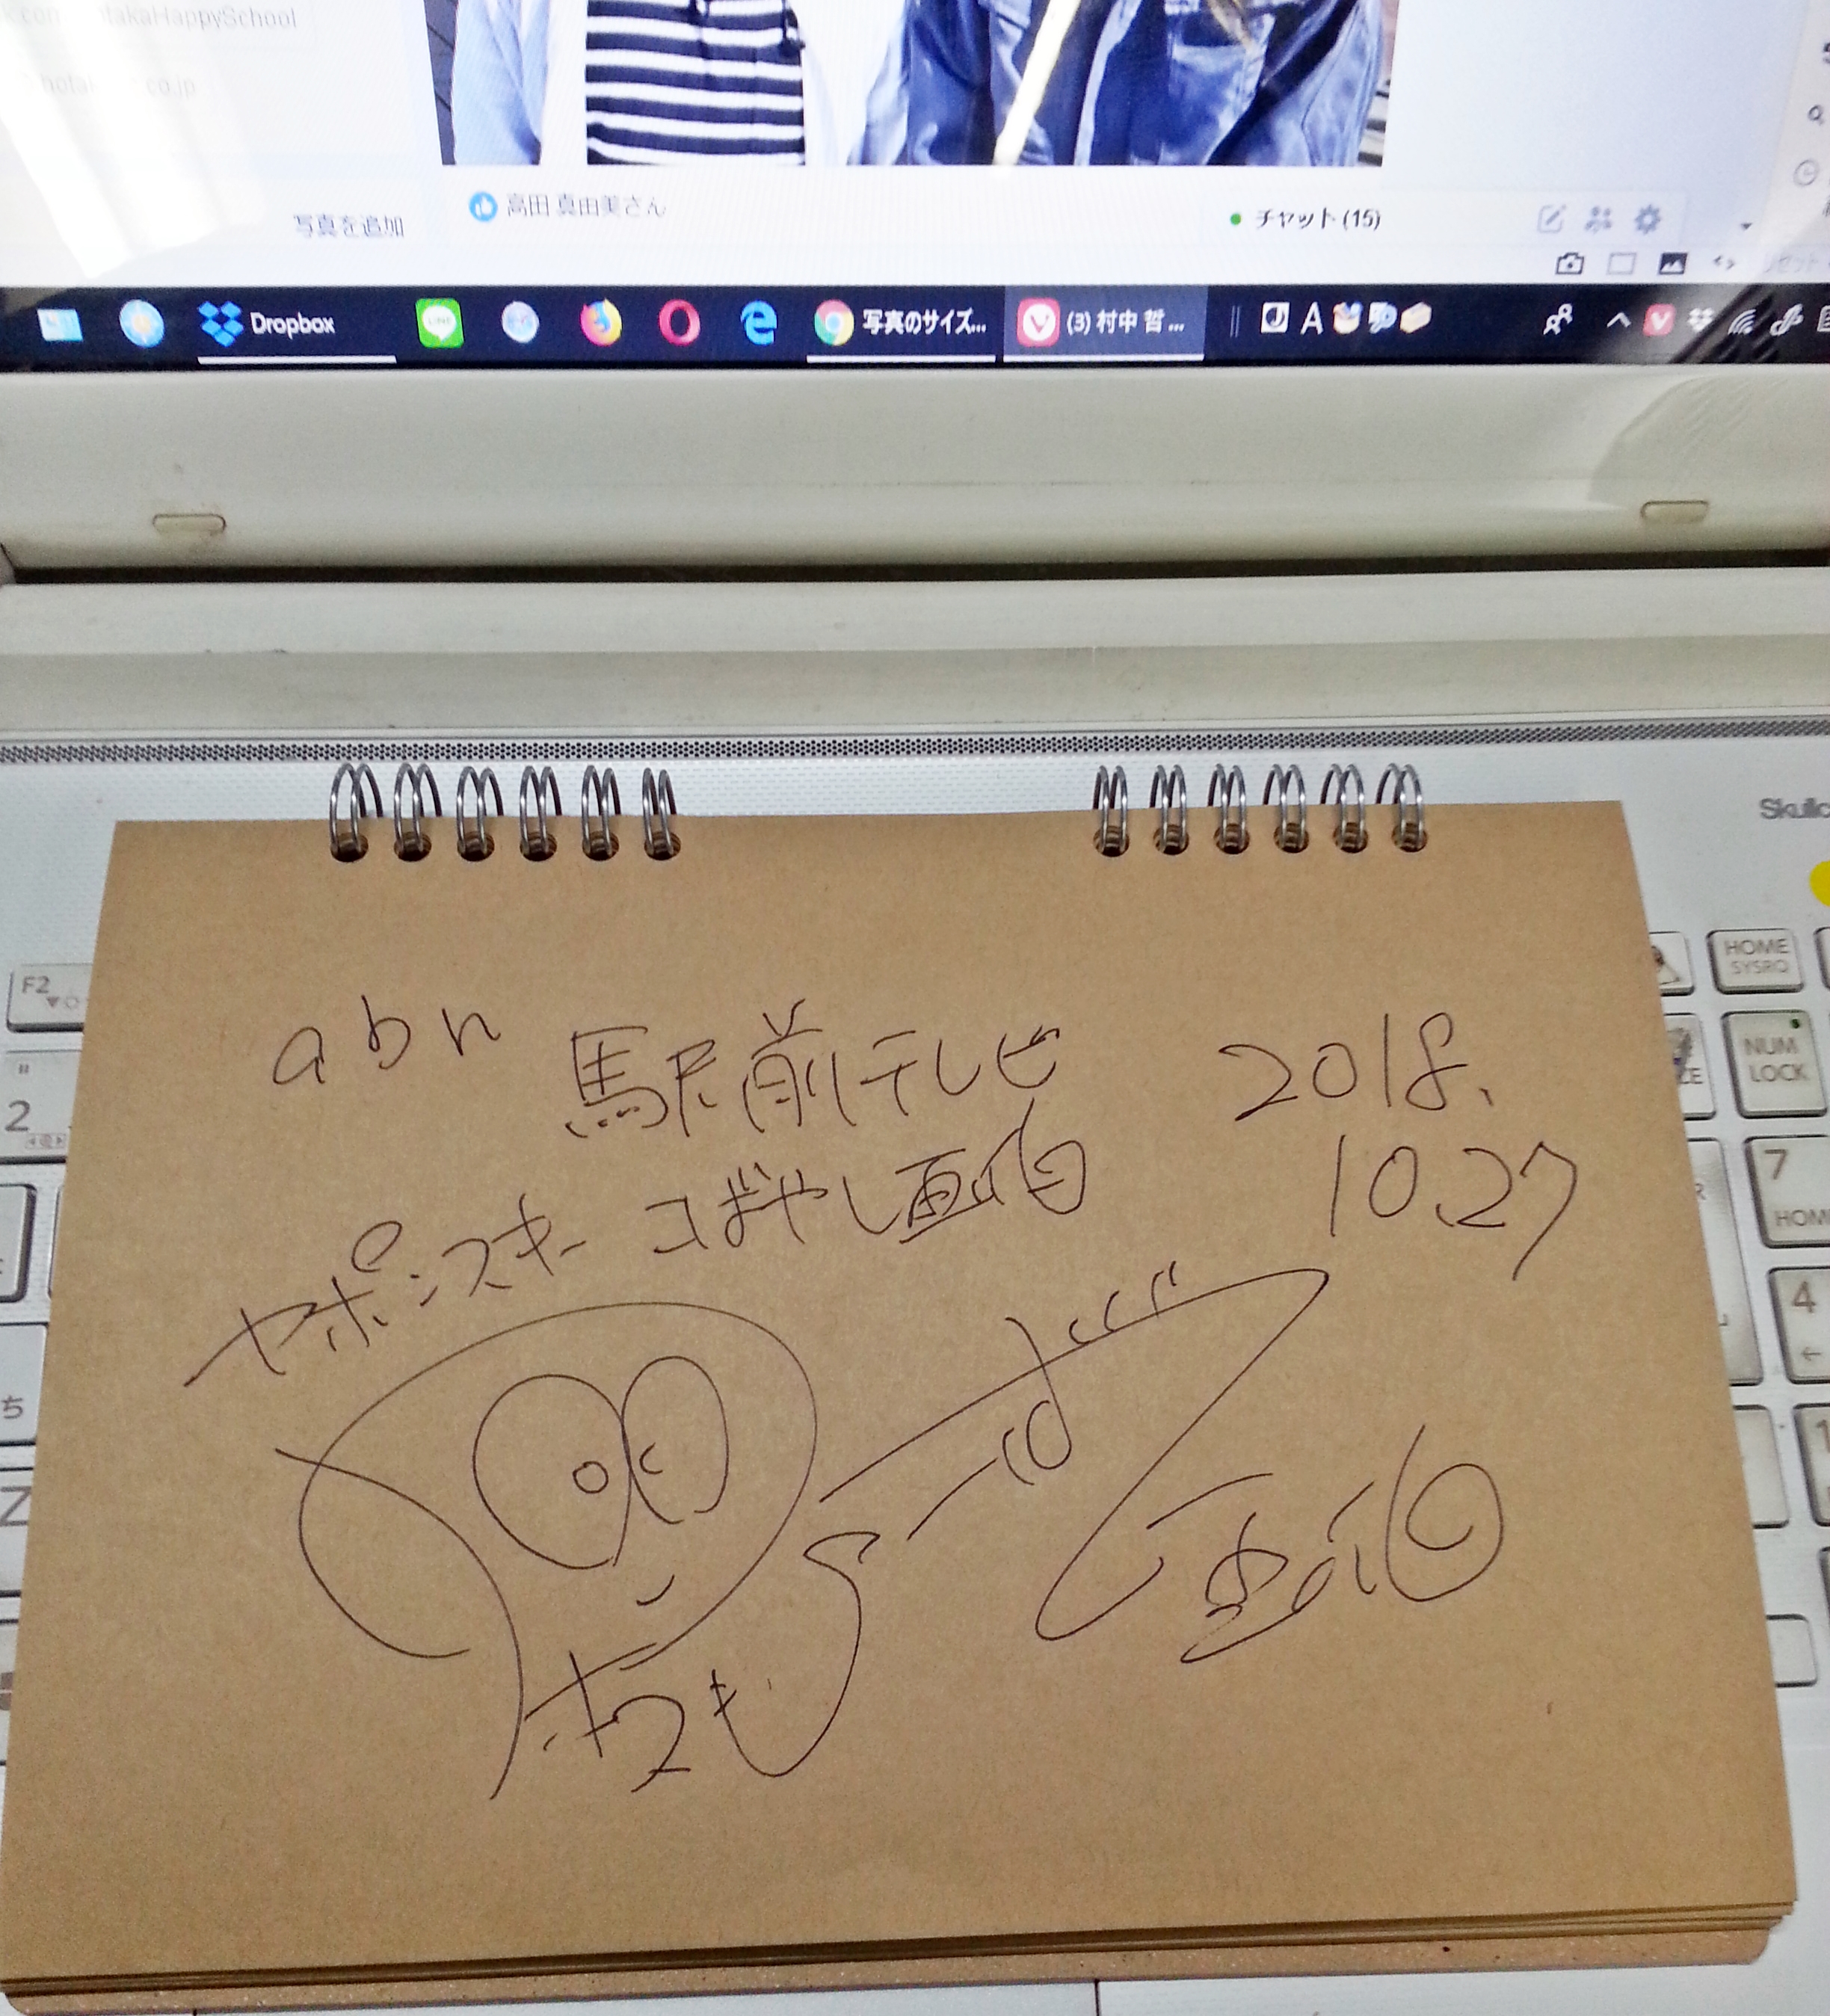 akaHappySchool
co.jp
写真を追加
高田 真由美さん
チャット (15)
Dropbox
LINE
写真のサイズ...
(3) 村中 哲 ...
A
Skullc
F2
HOME
SYSRQ
"
2
NUM
LOCK
7
HOM
4
ち
Z
1
abn 駅前テレビ 2018.
10.27
ヤポンスキーこばやし画伯
画伯